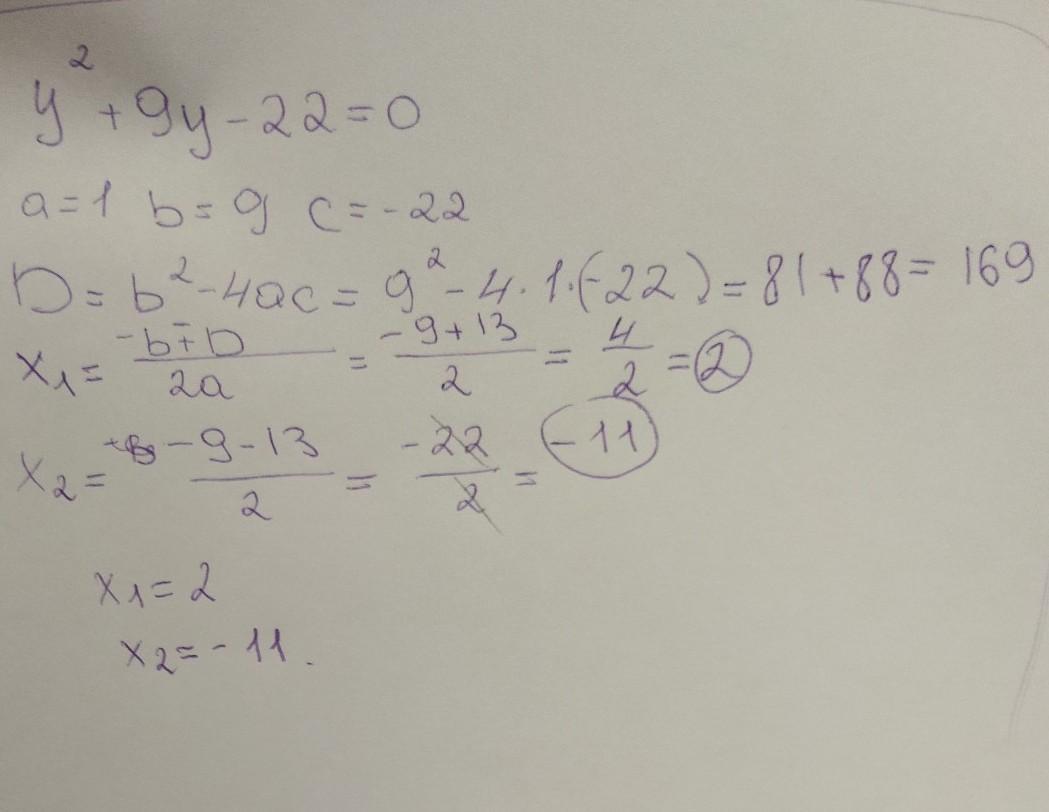 y² + 9y - 22 = 0
a = 1 b = 9 c = -22
D = b² - 4ac = 9² - 4 · 1 · (-22) = 81 + 88 = 169
x₁ = -b∓D / 2a = -9+13 / 2 = 4/2 = 2
x₂ = -9-13 / 2 = -22/2 = -11
x₁ = 2
x₂ = -11.